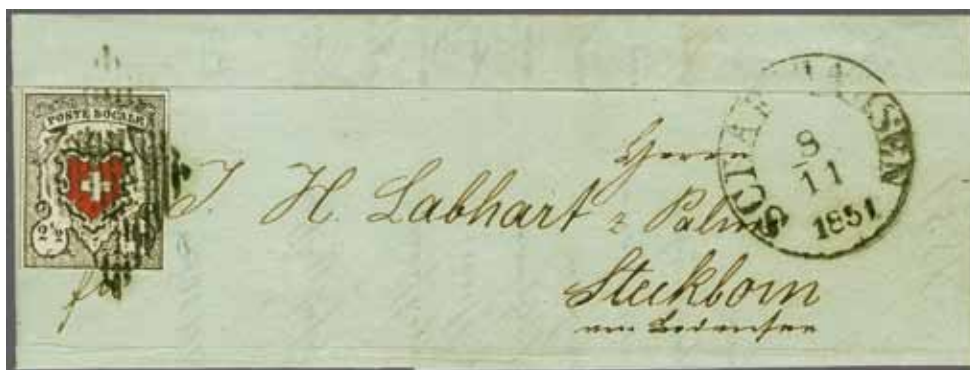 POSTE LOCALE
2½
SCHAFFHAUSEN
8
11
1851
Herrn
J. H. Labhart z. Palme
Steckborn
am Bodensee